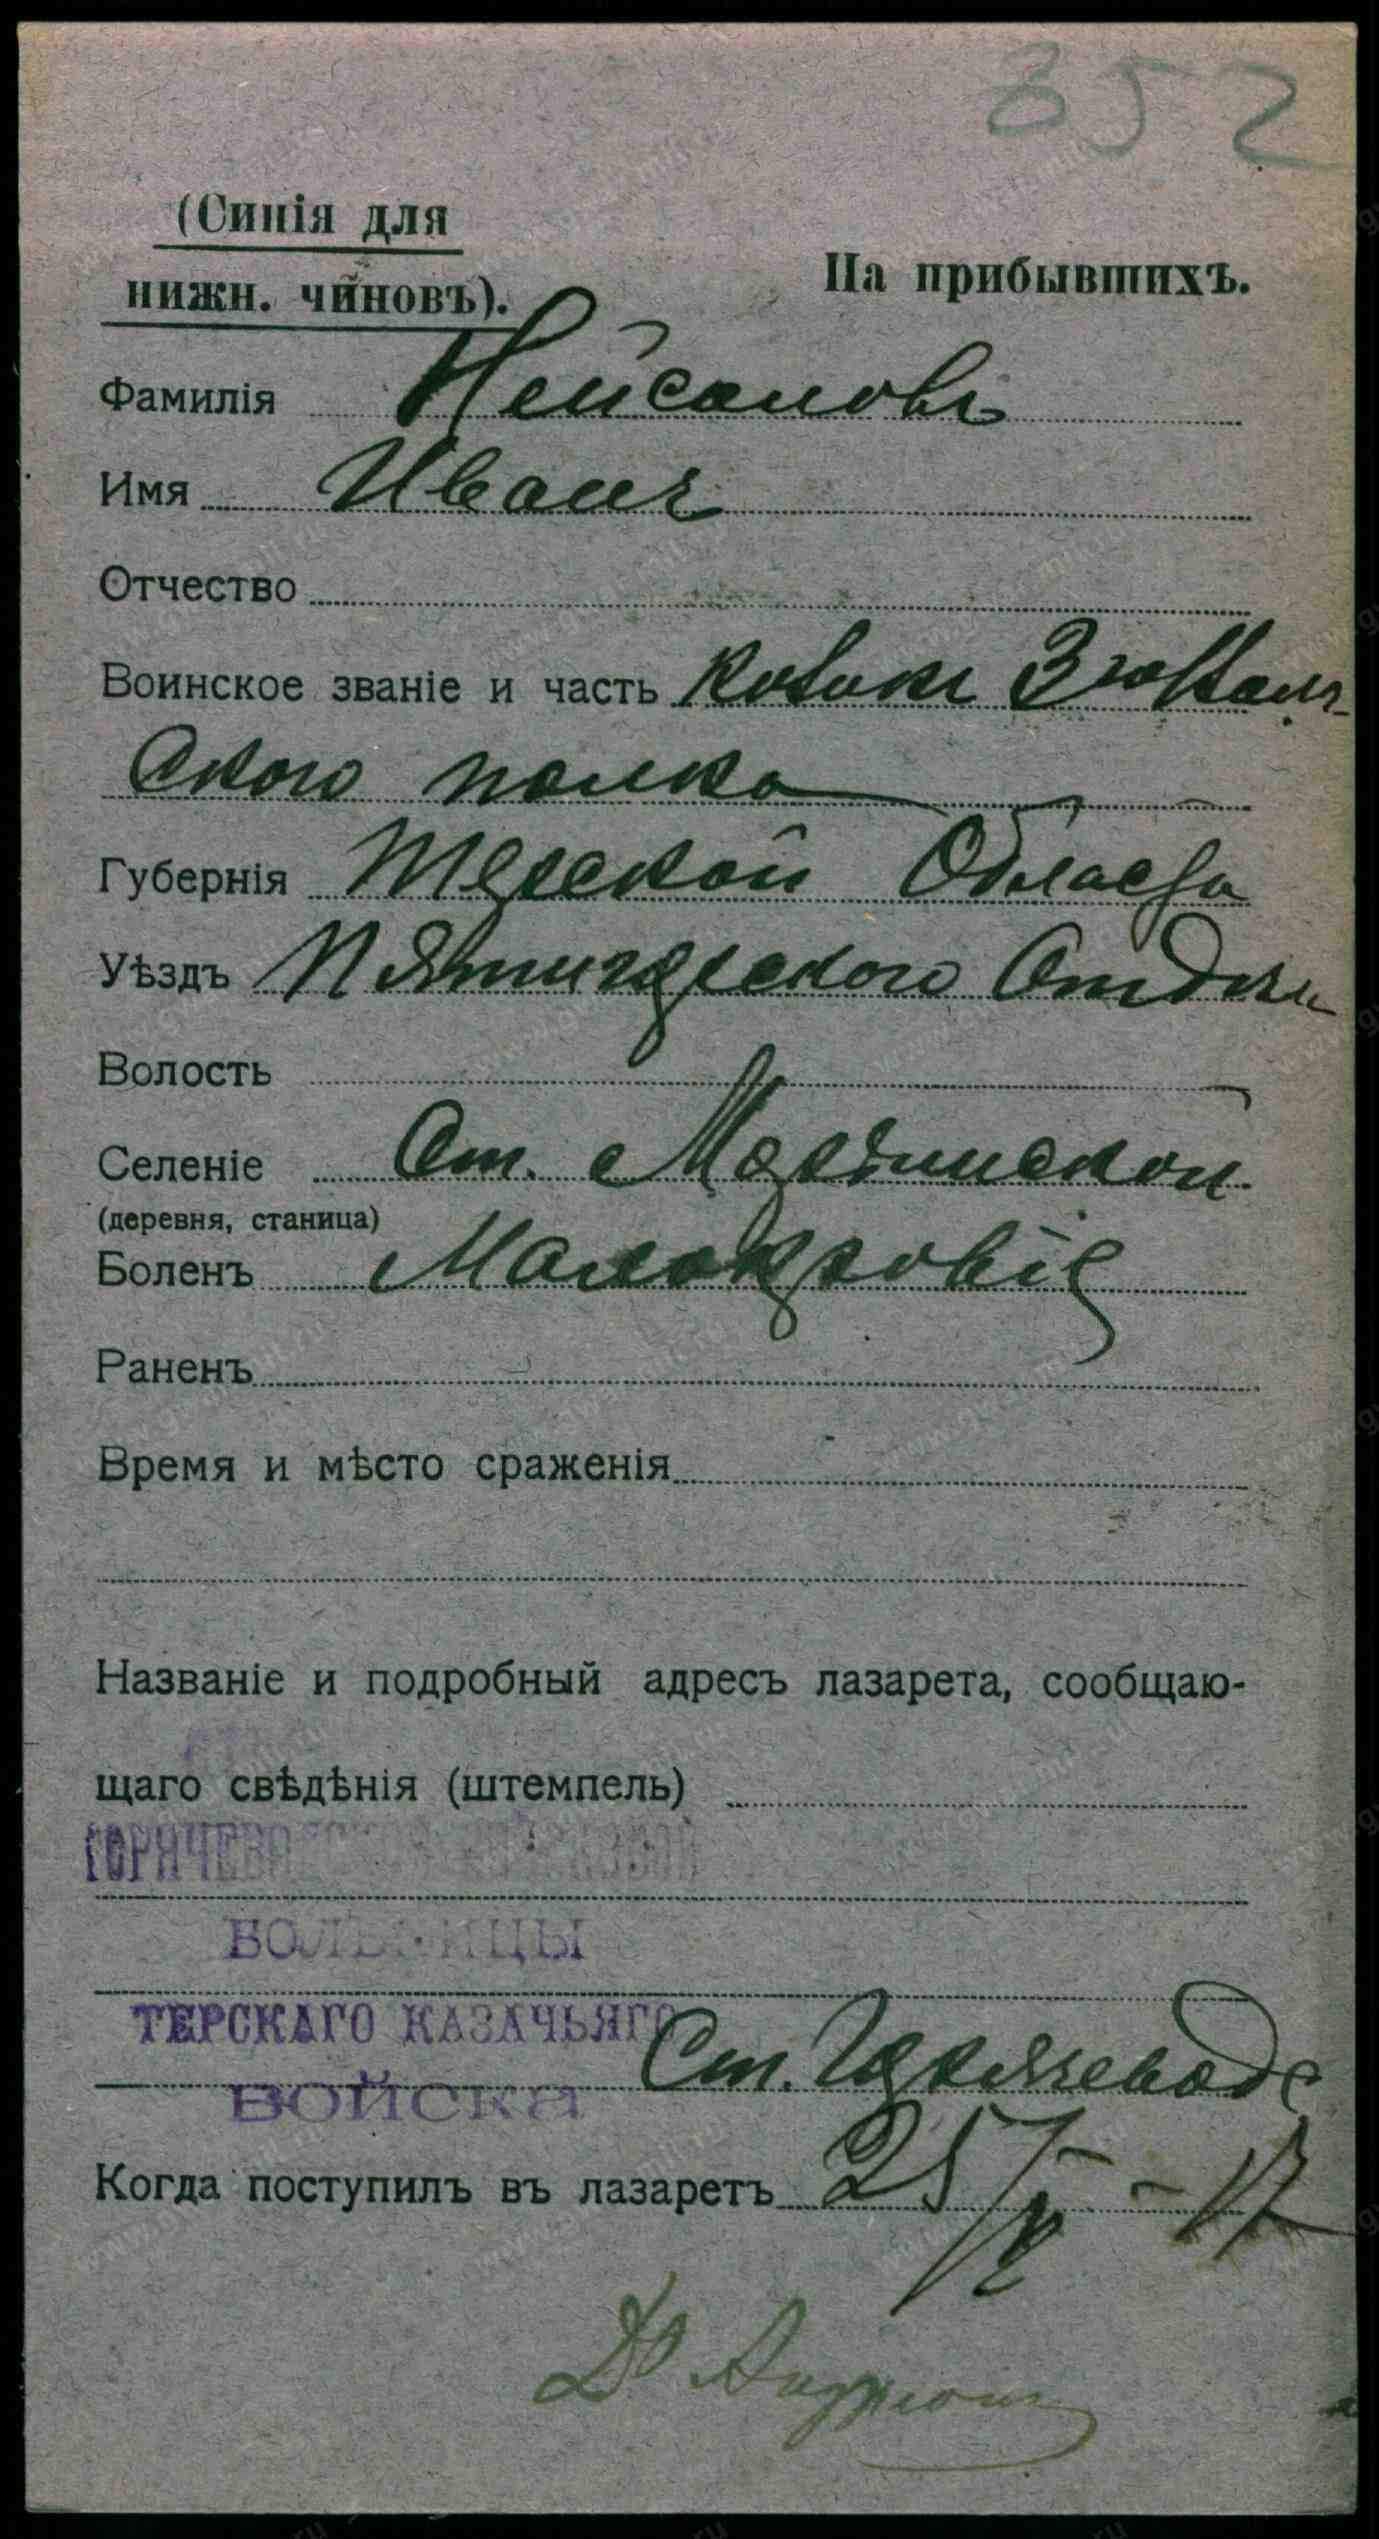 852
(Синія для
нижн. чиновъ).
На прибывшихъ.
Фамилія Нейсановъ
Имя Иванъ
Отчество
Воинское званіе и часть казакъ 3го
ского полка
Губернія Терской Области
Уѣздъ Пятигорского Отдѣла
Волость
Селеніе Ст.
(деревня, станица)
Боленъ Малокровіе
Раненъ
Время и мѣсто сраженія
Названіе и подробный адресъ лазарета, сообщаю-
щаго свѣдѣнія (штемпель)
ГОРЯЧЕВОДСКОЙ ВОЙСКОВОЙ
БОЛЬНИЦЫ
ТЕРСКАГО КАЗАЧЬЯГО
Ст. Горячеводс
ВОЙСКА
Когда поступилъ въ лазаретъ 25/V - 17
Др